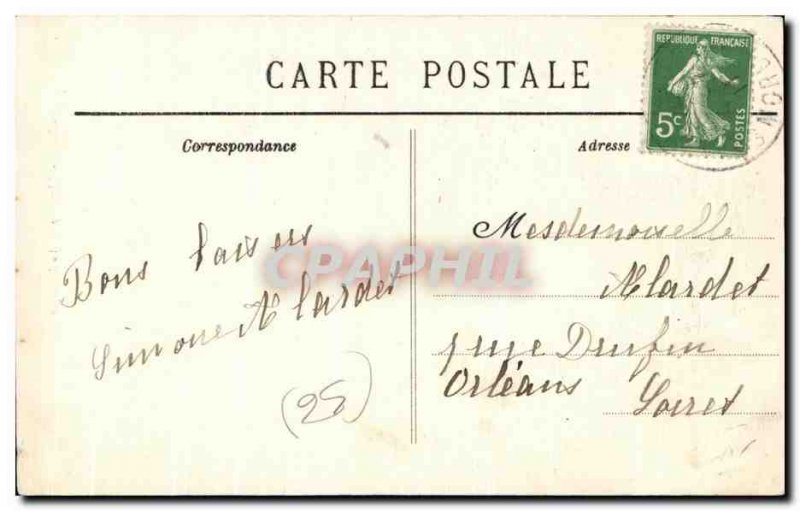 CARTE POSTALE
Correspondance
Adresse
REPUBLIQUE FRANÇAISE
5c
POSTES
Bons baisers
Simone Alardet
(25)
Mesdemoiselle
Alardet
rue
Orléans Loiret
CPAPHIL